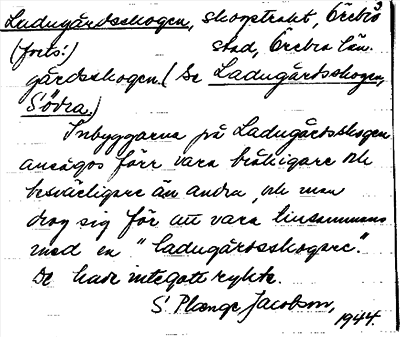 Ladugårdsskogen, skogstrakt, Örebro
(forts:) stad, Örebro län.
gårdsskogen. (Se Ladugårdsskogen,
Södra.)
Inbyggarna på Ladugårdsskogen
ansågos förr vara bråkigare och
besvärligare än andra, och man
drog sig för att vara tillsammans
med en "ladugårdsskogare".
De hade inte gott rykte.
S. Plænge Jacobson,
1944.